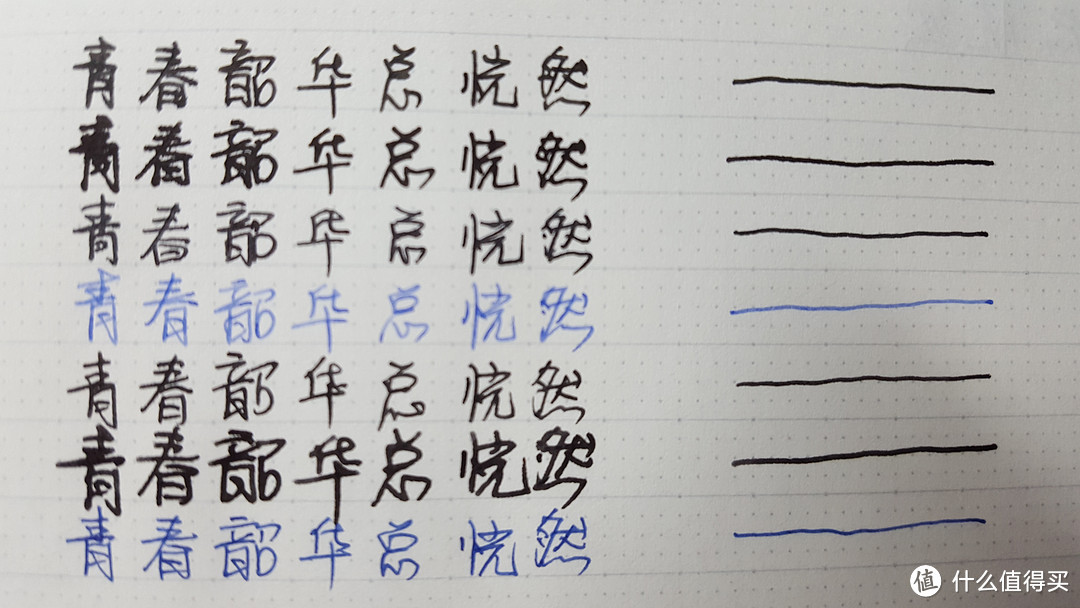 青春韶华总恍然
青春韶华总恍然
青春韶华总恍然
青春韶华总恍然
青春韶华总恍然
青春韶华总恍然
青春韶华总恍然
值 什么值得买